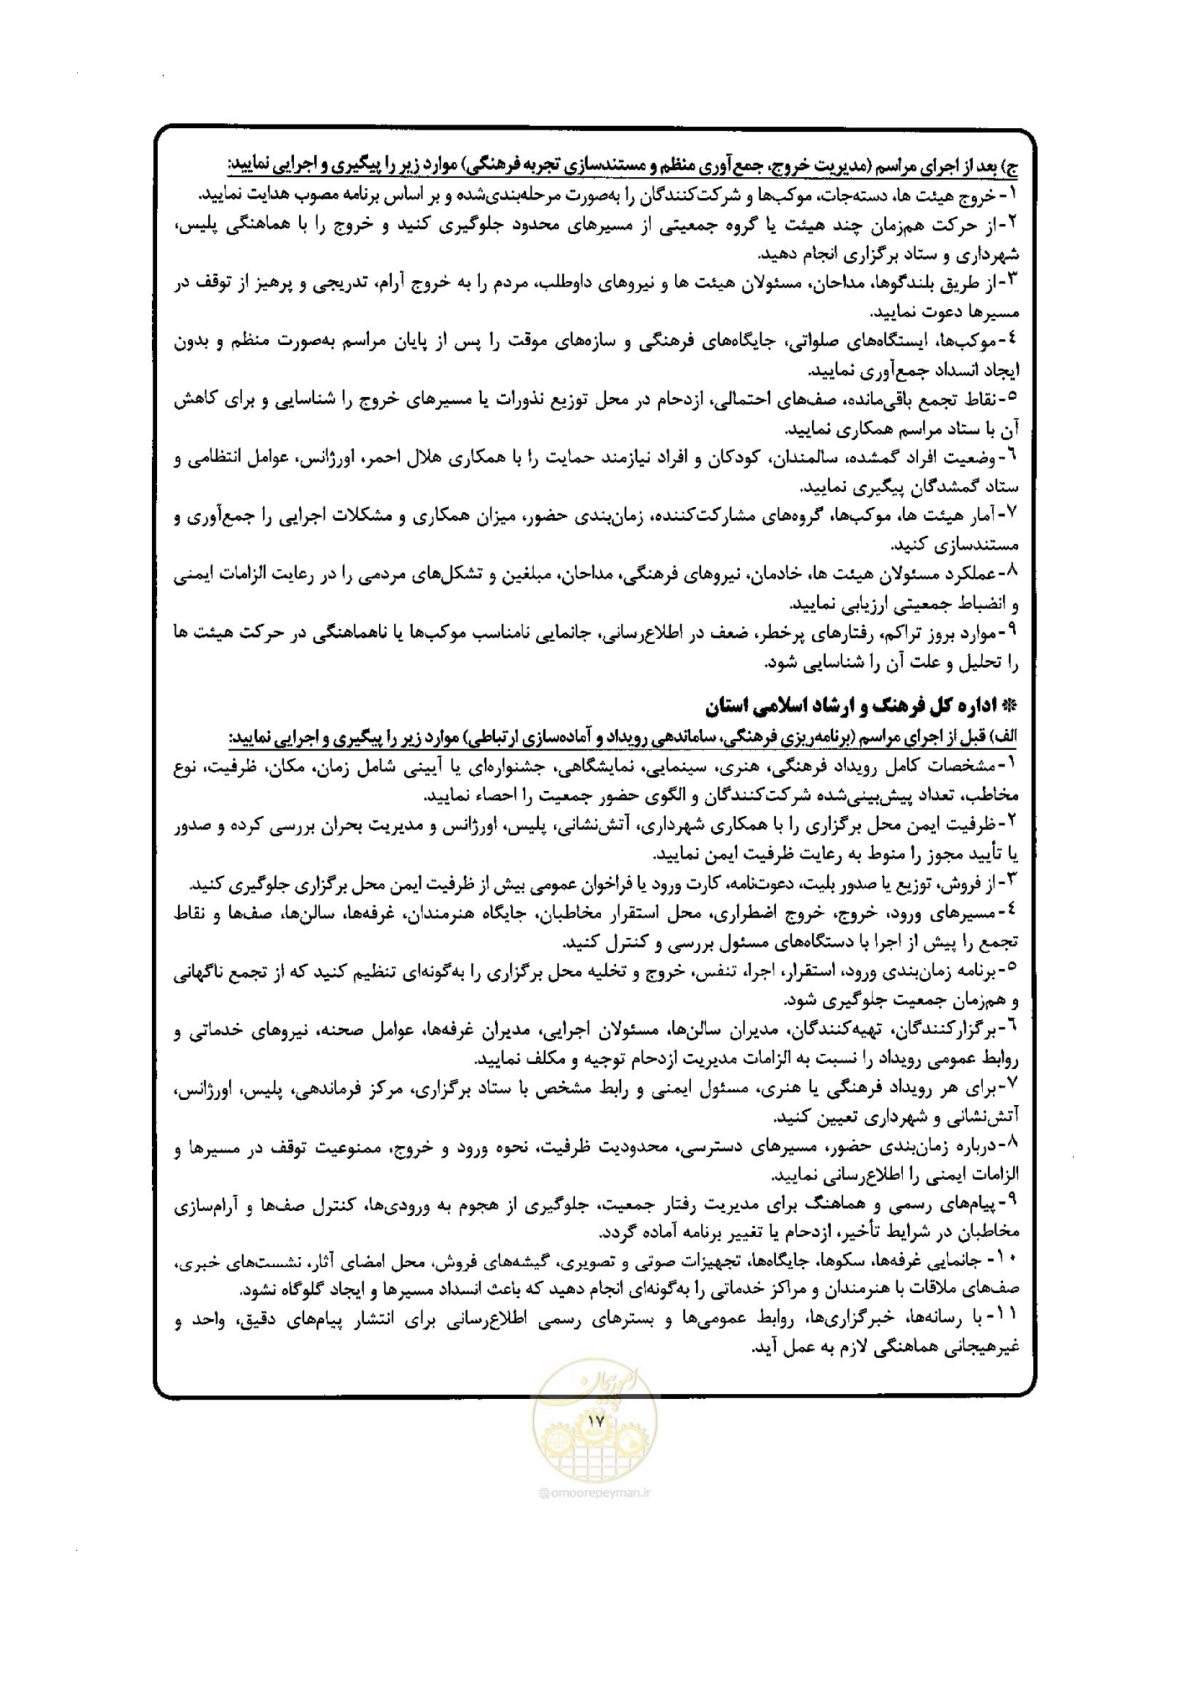 ج) بعد از اجرای مراسم (مدیریت خروج، جمع‌آوری منظم و مستندسازی تجربه فرهنگی) موارد زیر را پیگیری و اجرایی نمایید:
۱- خروج هیئت ها، دسته‌جات، موکب‌ها و شرکت‌کنندگان را به‌صورت مرحله‌بندی‌شده و بر اساس برنامه مصوب هدایت نمایید.
۲-از حرکت هم‌زمان چند هیئت یا گروه جمعیتی از مسیرهای محدود جلوگیری کنید و خروج را با هماهنگی پلیس،
شهرداری و ستاد برگزاری انجام دهید.
۳-از طریق بلندگوها، مداحان، مسئولان هیئت ها و نیروهای داوطلب، مردم را به خروج آرام، تدریجی و پرهیز از توقف در
مسیرها دعوت نمایید.
۴-موکب‌ها، ایستگاه‌های صلواتی، جایگاه‌های فرهنگی و سازه‌های موقت را پس از پایان مراسم به‌صورت منظم و بدون
ایجاد انسداد جمع‌آوری نمایید.
۵-نقاط تجمع باقی‌مانده، صف‌های احتمالی، ازدحام در محل توزیع نذورات یا مسیرهای خروج را شناسایی و برای کاهش
آن با ستاد مراسم همکاری نمایید.
۶-وضعیت افراد گمشده، سالمندان، کودکان و افراد نیازمند حمایت را با همکاری هلال احمر، اورژانس، عوامل انتظامی و
ستاد گمشدگان پیگیری نمایید.
۷-آمار هیئت ها، موکب‌ها، گروه‌های مشارکت‌کننده، زمان‌بندی حضور، میزان همکاری و مشکلات اجرایی را جمع‌آوری و
مستندسازی کنید.
۸-عملکرد مسئولان هیئت ها، خادمان، نیروهای فرهنگی، مداحان، مبلغین و تشکل‌های مردمی را در رعایت الزامات ایمنی
و انضباط جمعیتی ارزیابی نمایید.
۹-موارد بروز تراکم، رفتارهای پرخطر، ضعف در اطلاع‌رسانی، جانمایی نامناسب موکب‌ها یا ناهماهنگی در حرکت هیئت ها
را تحلیل و علت آن را شناسایی شود.
* اداره کل فرهنگ و ارشاد اسلامی استان
الف) قبل از اجرای مراسم (برنامه‌ریزی فرهنگی، ساماندهی رویداد و آماده‌سازی ارتباطی) موارد زیر را پیگیری و اجرایی نمایید:
۱-مشخصات کامل رویداد فرهنگی، هنری، سینمایی، نمایشگاهی، جشنواره‌ای یا آیینی شامل زمان، مکان، ظرفیت، نوع
مخاطب، تعداد پیش‌بینی‌شده شرکت‌کنندگان و الگوی حضور جمعیت را احصاء نمایید.
۲-ظرفیت ایمن محل برگزاری را با همکاری شهرداری، آتش‌نشانی، پلیس، اورژانس و مدیریت بحران بررسی کرده و صدور
یا تأیید مجوز را منوط به رعایت ظرفیت ایمن نمایید.
۳-از فروش، توزیع یا صدور بلیت، دعوت‌نامه، کارت ورود یا فراخوان عمومی بیش از ظرفیت ایمن محل برگزاری جلوگیری کنید.
۴-مسیرهای ورود، خروج، خروج اضطراری، محل استقرار مخاطبان، جایگاه هنرمندان، غرفه‌ها، سالن‌ها، صف‌ها و نقاط
تجمع را پیش از اجرا با دستگاه‌های مسئول بررسی و کنترل کنید.
۵-برنامه زمان‌بندی ورود، استقرار، اجرا، تنفس، خروج و تخلیه محل برگزاری را به‌گونه‌ای تنظیم کنید که از تجمع ناگهانی
و هم‌زمان جمعیت جلوگیری شود.
۶-برگزارکنندگان، تهیه‌کنندگان، مدیران سالن‌ها، مسئولان اجرایی، مدیران غرفه‌ها، عوامل صحنه، نیروهای خدماتی و
روابط عمومی رویداد را نسبت به الزامات مدیریت ازدحام توجیه و مکلف نمایید.
۷-برای هر رویداد فرهنگی یا هنری، مسئول ایمنی و رابط مشخص با ستاد برگزاری، مرکز فرماندهی، پلیس، اورژانس،
آتش‌نشانی و شهرداری تعیین کنید.
۸-درباره زمان‌بندی حضور، مسیرهای دسترسی، محدودیت ظرفیت، نحوه ورود و خروج، ممنوعیت توقف در مسیرها و
الزامات ایمنی را اطلاع‌رسانی نمایید.
۹-پیام‌های رسمی و هماهنگ برای مدیریت رفتار جمعیت، جلوگیری از هجوم به ورودی‌ها، کنترل صف‌ها و آرام‌سازی
مخاطبان در شرایط تأخیر، ازدحام یا تغییر برنامه آماده گردد.
۱۰- جانمایی غرفه‌ها، سکوها، جایگاه‌ها، تجهیزات صوتی و تصویری، گیشه‌های فروش، محل امضای آثار، نشست‌های خبری،
صف‌های ملاقات با هنرمندان و مراکز خدماتی را به‌گونه‌ای انجام دهید که باعث انسداد مسیرها و ایجاد گلوگاه نشود.
۱۱- با رسانه‌ها، خبرگزاری‌ها، روابط عمومی‌ها و بسترهای رسمی اطلاع‌رسانی برای انتشار پیام‌های دقیق، واحد و
غیرهیجانی هماهنگی لازم به عمل آید.
امور پیمان
۱۷
@omoorepeyman.ir